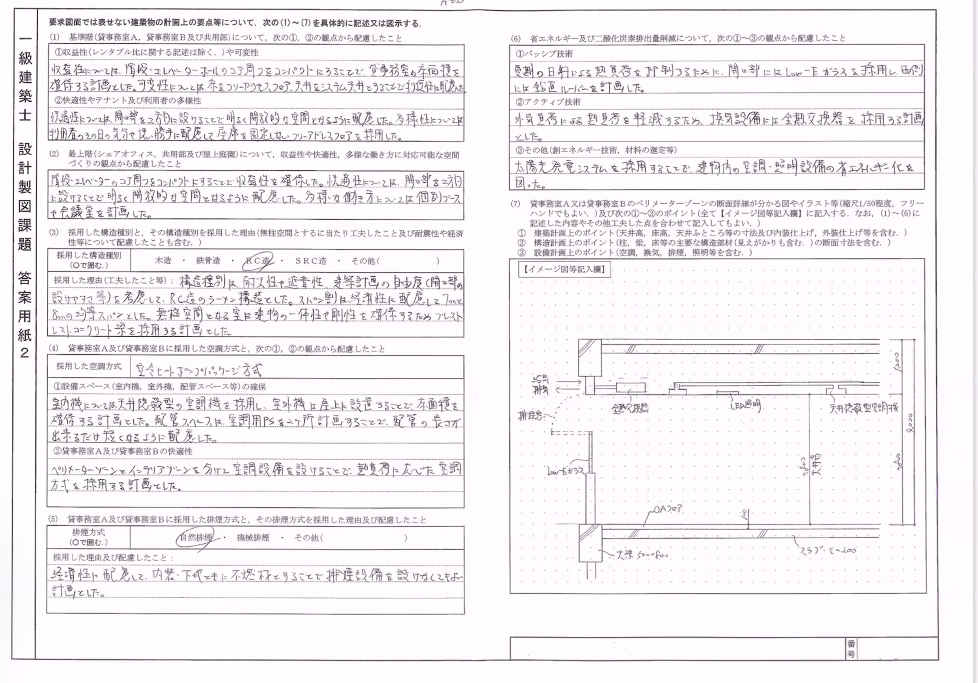 一級建築士 設計製図課題 答案用紙2
要求図面では表せない建築物の計画上の要点等について，次の(1)～(7)を具体的に記述又は図示する．
(1) 基準階(貸事務室A，貸事務室B及び共用部)について，次の①，②の観点から配慮したこと
①収益性(レンタブル比に関する記述は除く．)や可変性
収益性については，階段・エレベーターホールのコア周りをコンパクトにすることで，貸事務室の床面積を
確保する計画とした。可変性については床をフリーアクセスフロア，天井をシステム天井とすることで可変性に配慮した。
②快適性やテナント及び利用者の多様性
快適性については開口部を2方向に設けることで明るく開放的な空間となるように配慮した。多様性については
利用者のその日の気分や使い勝手に配慮して座席を固定しないフリーアドレスフロアを採用した。
(2) 最上階(シェアオフィス，共用部及び屋上庭園)について，収益性や快適性，多様な働き方に対応可能な空間
づくりの観点から配慮したこと
階段・エレベーターのコア周りをコンパクトにすることで収益性を確保した。快適性については，開口部を2方向
に設けることで明るく開放的な空間となるように配慮した。多様な働き方については個別ブース
や会議室を計画した。
(3) 採用した構造種別と，その構造種別を採用した理由(無柱空間とするに当たり工夫したこと及び耐震性や経済
性等について配慮したことも含む．)
採用した構造種別
(○で囲む．)
木造 ・ 鉄骨造 ・ RC造 ・ SRC造 ・ その他( )
採用した理由(工夫したこと等)： 構造種別は，耐久性や遮音性，建築計画の自由度(開口部の
設けやすさ等)を考慮して，RC造のラーメン構造とした。スパン割は，経済性に配慮して7mと
8mの均等スパンとした。無柱空間となる室は建物の一体性や剛性を確保するためプレスト
レストコンクリート梁を採用する計画とした。
(4) 貸事務室A及び貸事務室Bに採用した空調方式と，次の①，②の観点から配慮したこと
採用した空調方式 空冷ヒートポンプパッケージ方式
①設備スペース(室内機，室外機，配管スペース等)の確保
室内機については天井隠蔽型の空調機を採用し，室外機は屋上に設置することで，床面積を
確保する計画とした。配管スペースは空調用PSを2ヶ所計画することで，配管の長さが
出来るだけ短くなるように配慮した。
②貸事務室A及び貸事務室Bの快適性
ペリメーターゾーンとインテリアゾーンを分けて空調設備を設けることで，熱負荷に応じた空調
方式を採用する計画とした。
(5) 貸事務室A及び貸事務室Bに採用した排煙方式と，その排煙方式を採用した理由及び配慮したこと
排煙方式
(○で囲む．)
自然排煙 ・ 機械排煙 ・ その他( )
採用した理由及び配慮したこと：
経済性に配慮して，内装・下地ともに不燃材とすることで排煙設備を設けなくてもよい
計画とした。
(6) 省エネルギー及び二酸化炭素排出量削減について，次の①～③の観点から配慮したこと
①パッシブ技術
夏期の日射による熱負荷を抑制するために，開口部にはLow-Eガラスを採用し，西側
には鉛直ルーバーを計画した。
②アクティブ技術
外気負荷による熱負荷を軽減するため，換気設備には全熱交換器を採用する計画
とした。
③その他(創エネルギー技術，材料の選定等)
太陽光発電システムを採用することで，建物内の空調・照明設備の省エネルギー化を
図った。
(7) 貸事務室A又は貸事務室Bのペリメーターゾーンの断面詳細が分かる図やイラスト等(縮尺1/50程度，フリー
ハンドでもよい．)及び次の①～③のポイント(全て【イメージ図等記入欄】に記入する．なお，(1)～(6)に
記述した内容やその他工夫した点を合わせて記入してもよい．)
① 建築計画上のポイント(天井高，床高，天井ふところ等の寸法及び内装仕上げ，外装仕上げ等を含む．)
② 構造計画上のポイント(柱，梁，床等の主要な構造部材(見えがかりも含む．)の断面寸法を含む．)
③ 設備計画上のポイント(空調，換気，排煙，照明等を含む．)
【イメージ図等記入欄】
給気
排気
排煙窓
全熱交換器
LED照明
天井隠蔽型空調機
1,200
4,000
2,800
天井高
Low-Eガラス
OAフロア
大梁 500×800
スラブ t=200
番号